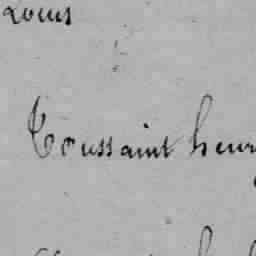 Louis
Toussaint henr